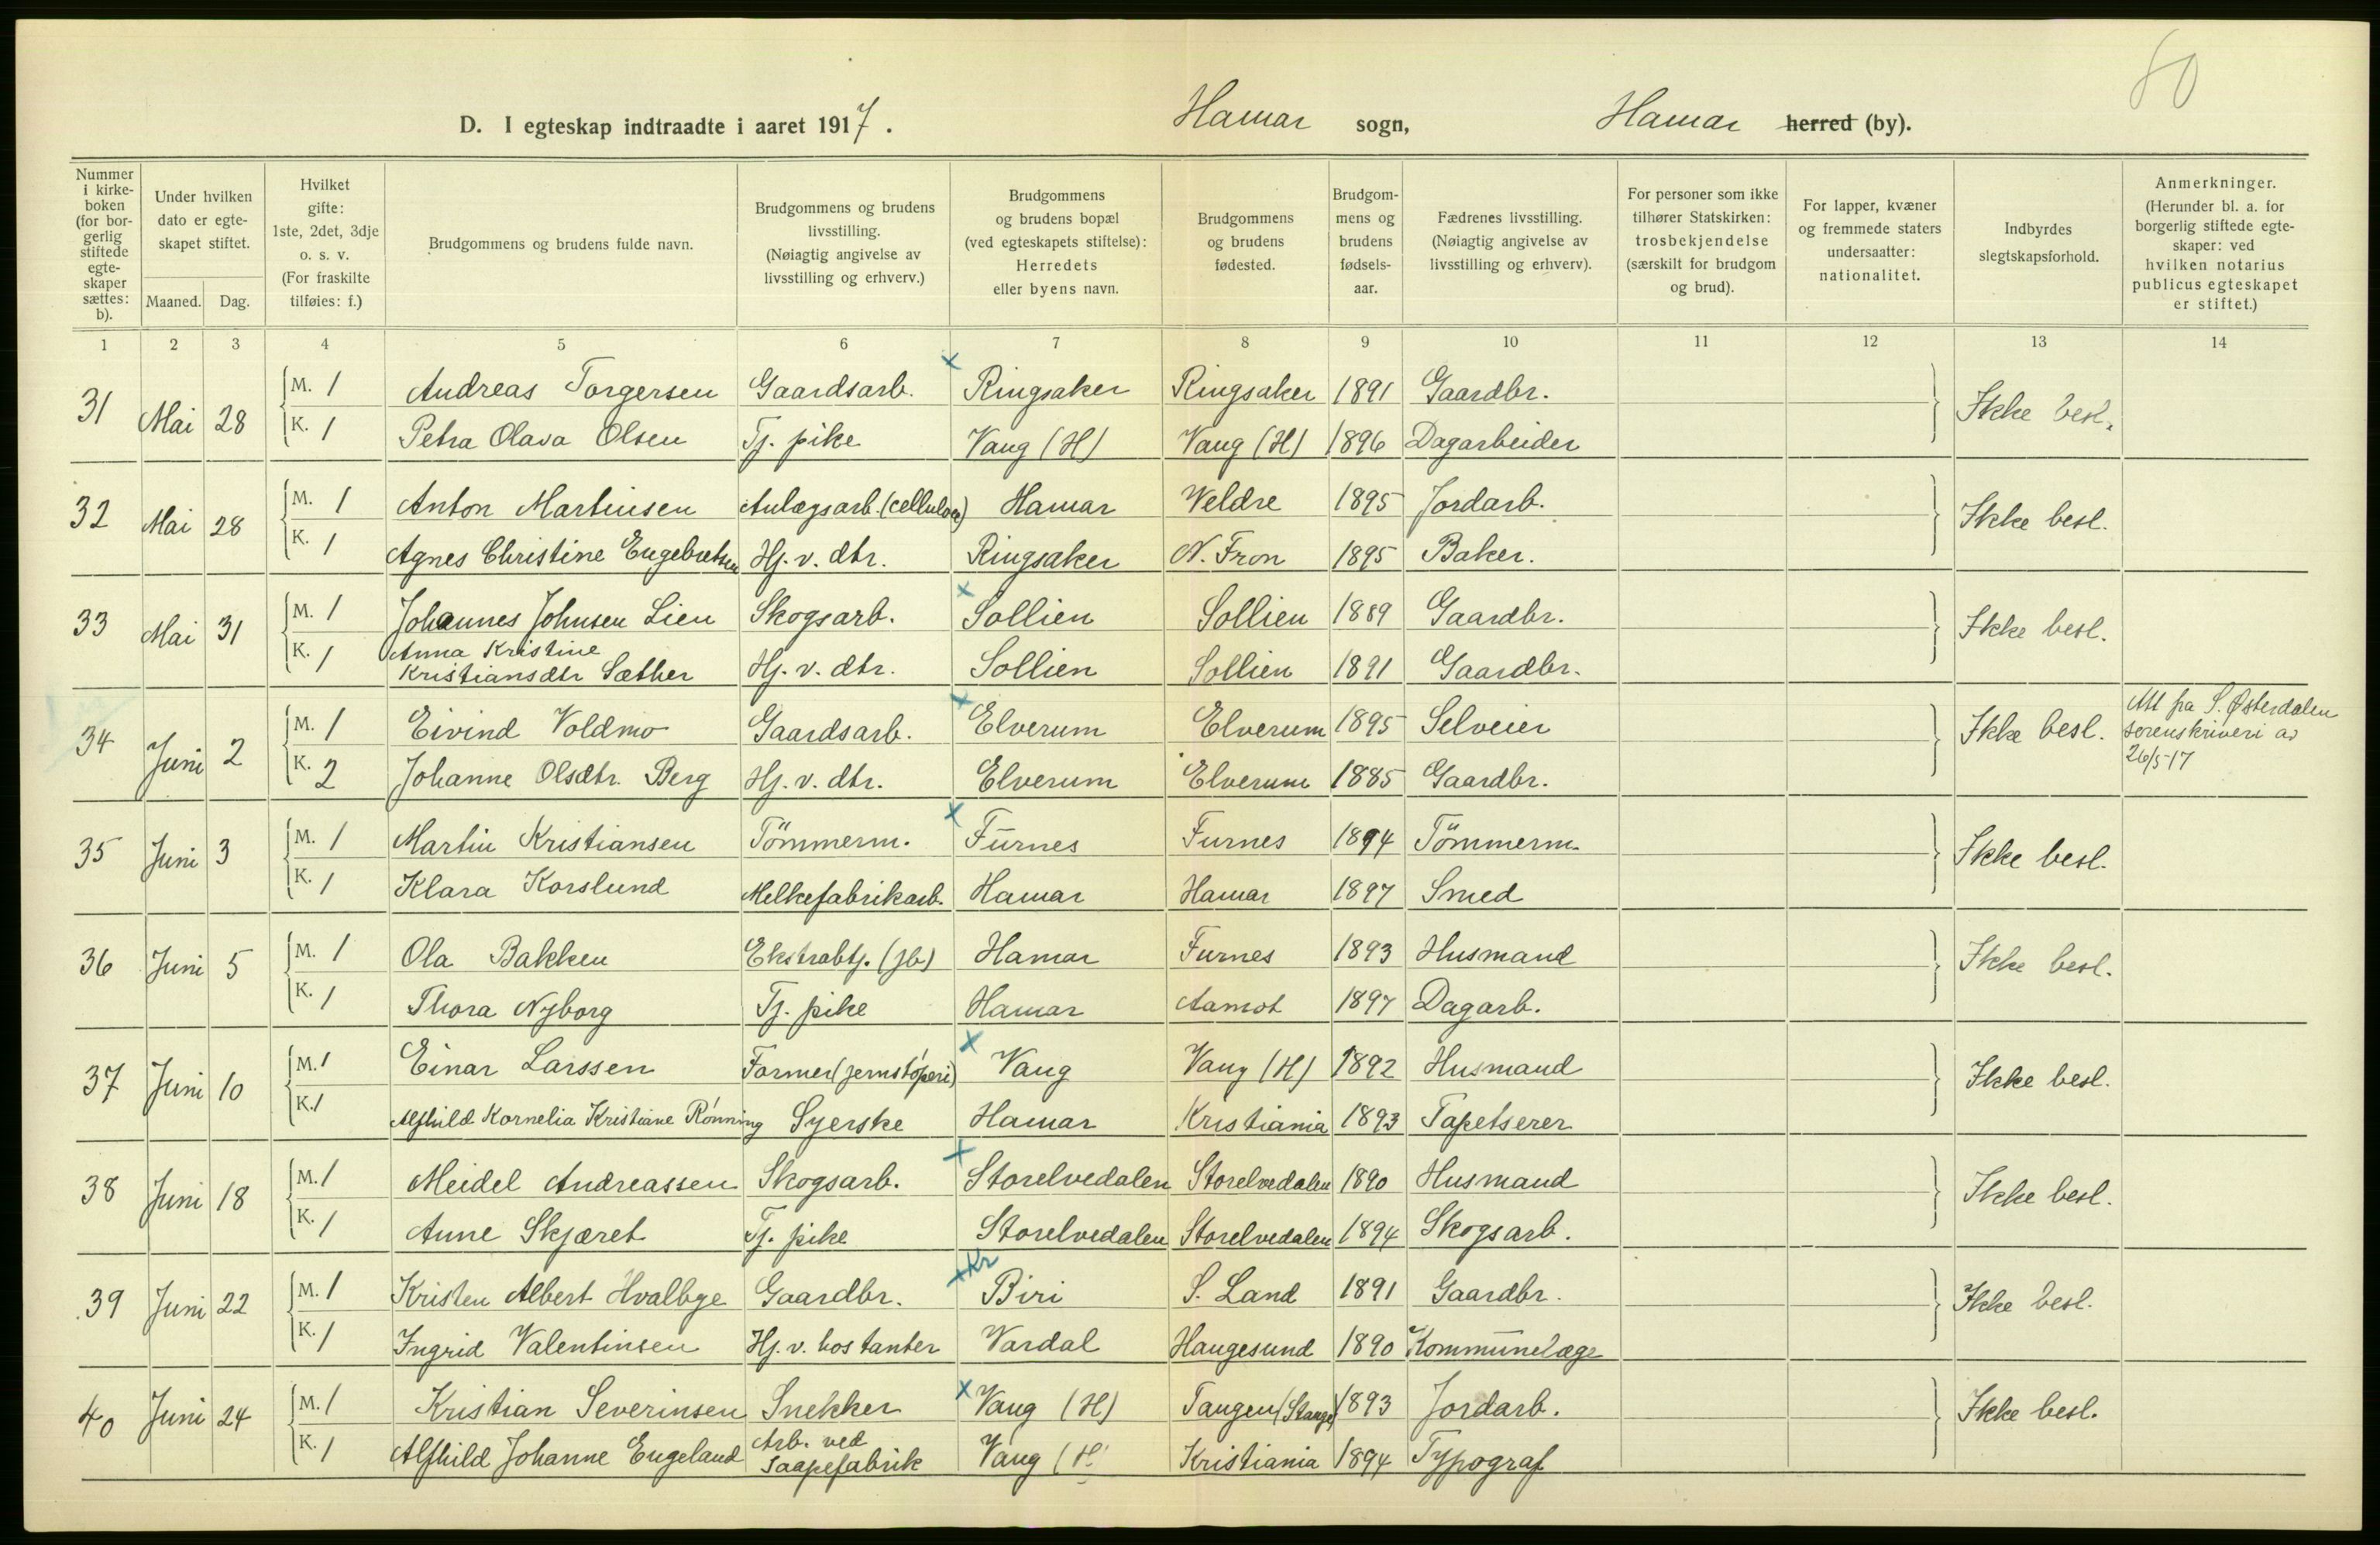 80
D. I egteskap indtraadte i aaret 1917. Hamar sogn, Hamar herred (by).
Nummer i kirkeboken (for borgerlig stiftede egteskaper sættes: b).
Under hvilken dato er egteskapet stiftet.
Maaned. Dag.
Hvilket gifte: 1ste, 2det, 3dje o. s. v. (For fraskilte tilføies: f.)
Brudgommens og brudens fulde navn.
Brudgommens og brudens livsstilling. (Nøiagtig angivelse av livsstilling og erhverv.)
Brudgommens og brudens bopæl (ved egteskapets stiftelse): Herredets eller byens navn.
Brudgommens og brudens fødested.
Brudgommens og brudens fødselsaar.
Fædrenes livsstilling. (Nøiagtig angivelse av livsstilling og erhverv).
For personer som ikke tilhører Statskirken: trosbekjendelse (særskilt for brudgom og brud).
For lapper, kvæner og fremmede staters undersaatter: nationalitet.
Indbyrdes slegtskapsforhold.
Anmerkninger. (Herunder bl. a. for borgerlig stiftede egteskaper: ved hvilken notarius publicus egteskapet er stiftet.)
1 2 3 4 5 6 7 8 9 10 11 12 13 14
31 Mai 28 M. 1 Andreas Torgersen Gaardsarb. Ringsaker Ringsaker 1891 Gaardbr. Ikke besl.
K. 1 Petra Olava Olsen Tj. pike Vang (H) Vang (H) 1896 Dagarbeider
32 Mai 28 M. 1 Anton Martinsen Anlægsarb. (cellulose) Hamar Veldre 1895 Jordarb. Ikke besl.
K. 1 Agnes Christine Engebretsen Hj. v. dtr. Ringsaker N. Fron 1895 Baker.
33 Mai 31 M. 1 Johannes Johnsen Lien Skogsarb. Sollien Sollien 1889 Gaardbr. Ikke besl.
K. 1 Anna Kristine
Kristiansdtr Sæther Hj. v. dtr. Sollien Sollien 1891 Gaardbr.
34 Juni 2 M. 1 Eivind Voldmo Gaardsarb. Elverum Elverum 1895 Selveier Ikke besl. Att fra S. Østerdalen
sorenskriveri av
26/5-17
K. 2 Johanne Olsdtr. Berg Hj. v. dtr. Elverum Elverum 1885 Gaardbr.
35 Juni 3 M. 1 Martin Kristiansen Tömmerm. Furnes Furnes 1894 Tömmerm. Ikke besl.
K. 1 Klara Korslund Melkefabrikarb. Hamar Hamar 1897 Smed
36 Juni 5 M. 1 Ola Bakken Ekstrabtj. (jb) Hamar Furnes 1893 Husmand Ikke besl.
K. 1 Thora Nyborg Tj. pike Hamar Aamot 1897 Dagarb.
37 Juni 10 M. 1 Einar Larssen Former (jernstøperi) Vang Vang (H) 1892 Husmand Ikke besl.
K. 1 Alfhild Kornelia Kristiane Rónning Syerske Hamar Kristiania 1893 Tapetserer
38 Juni 18 M. 1 Meidel Andreassen Skogsarb. Storelvedalen Storelvedalen 1890 Husmand Ikke besl.
K. 1 Anne Skjæret Tj. pike Storelvedalen Storelvedalen 1894 Skogsarb.
39 Juni 22 M. 1 Kristen Albert Hvalbye Gaardbr. Kr Biri S. Land 1891 Gaardbr. Ikke besl.
K. 1 Ingrid Valentinsen Hj. v. hos tanter Vardal Haugesund 1890 Kommunelæge
40 Juni 24 M. 1 Kristian Severinsen Snekker Vang (H) Tangen (Stange) 1893 Jordarb. Ikke besl.
K. 1 Alfhild Johanne Engeland Arb. ved
Saapefabrik Vang (H) Kristiania 1894 Typograf